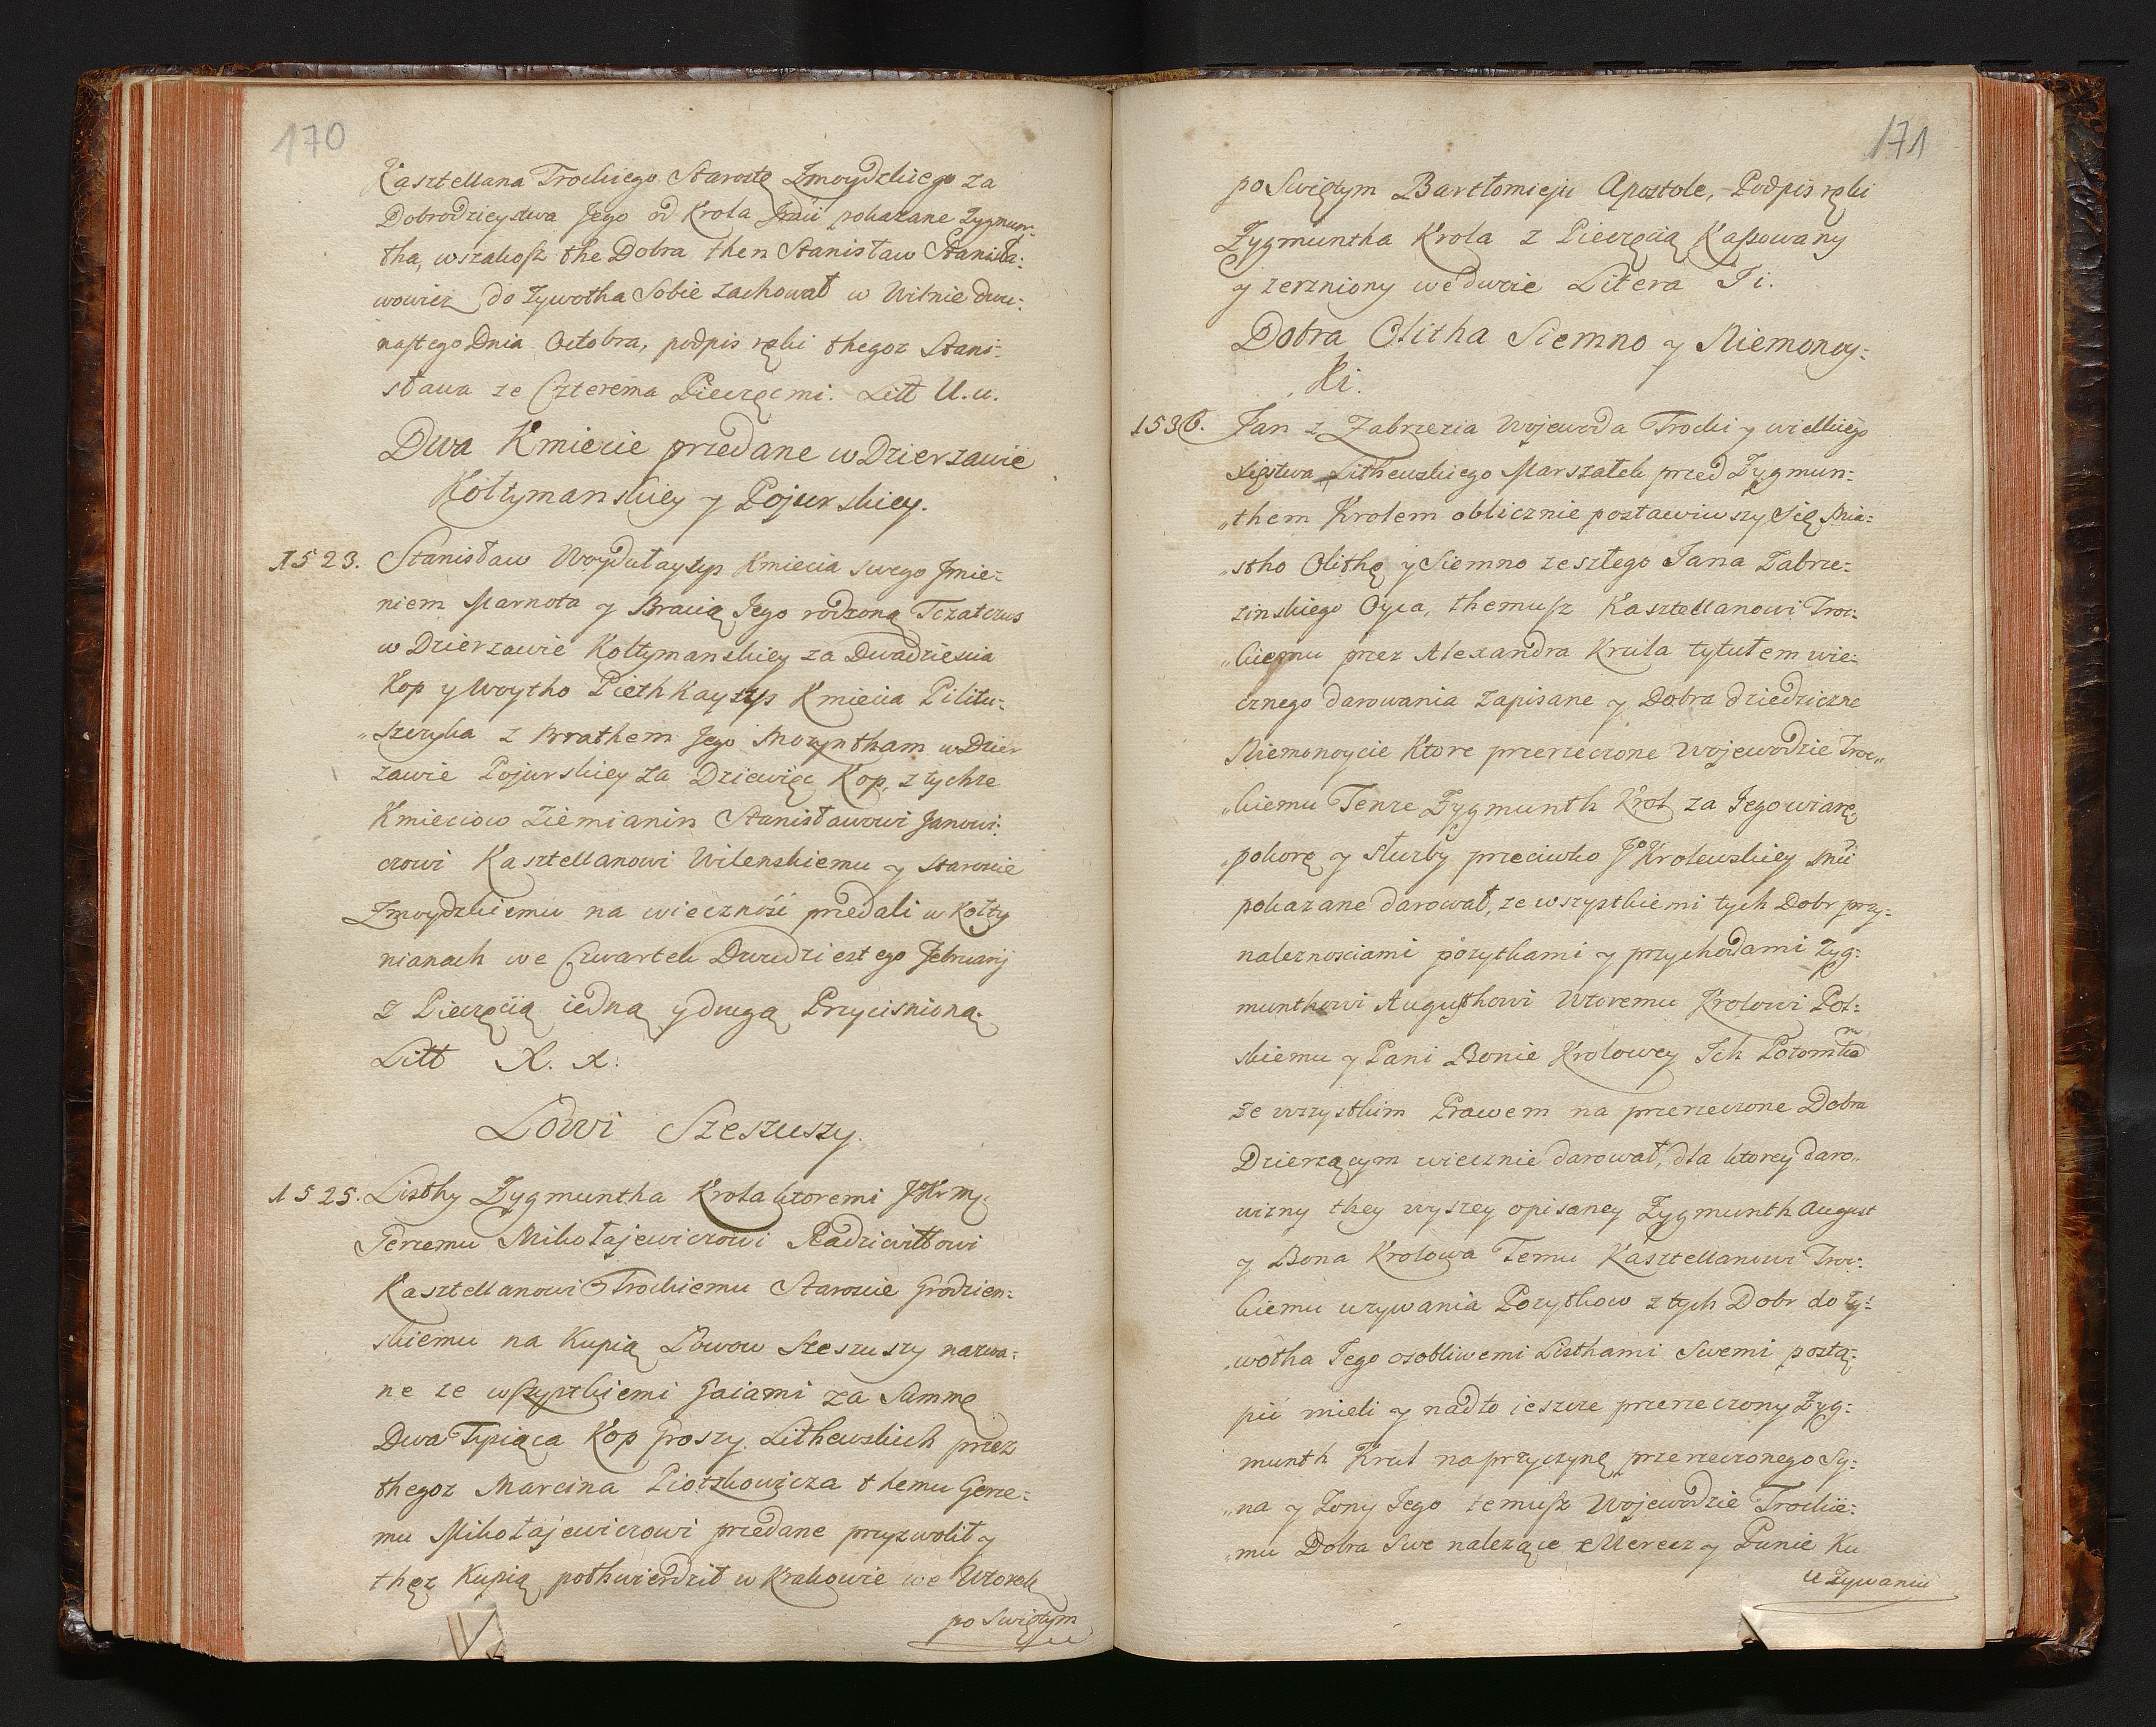 170
Kasztellana Trockiego Starostę Zmoydzkiego za
Dobrodzieystwa Jego od Krola Jmći pokazane Zygmun-
tha, wszakosz the Dobra then Stanisław Stanisła:
wowicz do Zywotha Sobie zachował w Wilnie dwu:
nastego Dnia Octobra, podpis ręki thegoz Stani:
sława ze Czterema Pieczęcmi. Litt U. u.
Dwa Kmiecie przedane w Dzierzawie
Kołtymanskiey y Pojurskiey.
1523. Stanisław Woydułaytys Kmiecia swego Jmie:
niem Marnota y Bracią Jego rodzoną
w Dzierzawie Kołtymanskiey za Dwadziescia
Kop y Woytho Pieth Kayszys Kmiecia Pilitu:
szeryka z Brathem Jego Moryntham w Dzier
zawie Pojurskiey za Dziewięc Kop, z tychze
Kmieciow Ziemianin Stanisławowi Janowi:
czowi Kasztellanowi Wilenskiemu y Staroscie
Zmoydzkiemu na wieczność przedali w Kołty
nianach we Czwartek Dwudziestego Februarij
z Pieczęcią iedną y drugą Przycisnioną.
Litt X. x.
Łowi Szeszuszy.
1525. Listhy Zygmuntha Krola ktoremi JKrmć
Jerzemu Mikołajewiczowi Radziwiłłowi
Kasztellanowi Trockiemu Staroscie Grodzien:
skiemu na Kupią Łowow Szeszuszy nazwa:
ne ze wszystkiemi Gaiami za Summę
Dwa Tysiąca Kop Groszy Lithewskich przez
thegoz Marcina Piotszkowicza themu Gerze:
mu Mikołajewiczowi przedane przyzwolił y
thęz Kupią pothwierdził w Krakowie we Wtorek
po Swiętym
171
po Swiętym Bartłomieju Apostole, Podpis ręki
Zygmuntha Krola z Pieczęcią Kassowany
y zerzniony we dwoie Litera Ti.
Dobra Olitha Siemno y Niemonoy:
ki.
1536. Jan z Zabrzezia Wojewoda Trocki y wielkiego
Xięstwa Lithewskiego Marszałek przed Zygmun:
"them Krolem oblicznie postawiwszy Się Mia:
"stho Olithę y Siemno zeszłego Jana Zabrze:
zinskiego Oyca, themusz Kasztellanowi Troc:
"kiemu przez Alexandra Krula tytułem wie:
cznego darowania zapisane y Dobra dziedziczne
Niemonoycie Ktore przerzeczone Wojewodzie Troc"
"kiemu Tenze Zygmunth Krol za Jego wiarę,
"pokorę y słuzby przeciwko JKrolewskiey Mći
pokazane darował, ze wszystkiemi tych Dobr przy:
naleznosciami pozytkami y przychodami Zyg:
munthowi Augusthowi Wtoremu Krolowi Pol:
skiemu y Pani Bonie Krolowey Ich Potomkom
ze wszystkim Prawem na przerzeczone Dobra
Dzierzącym wiecznie darował, dla ktorey daro"
wizny they wyszey opisaney Zygmunth August
y Bona Krolowa Temu Kasztellanowi Troc:
kiemu uzywania Pozytkow z tych Dobr do zy:
"wotha Jego osobliwemi Listhami Swemi postą:
pić mieli y nadto ieszcze przerzeczony Zyg:
munth Krul na przyczynę przerzeczonego Sy:
"na y Zony Jego temusz Wojewodzie Trockie:
"mu Dobra Swe nalezące Merecz y Punie Ku
uzywaniu